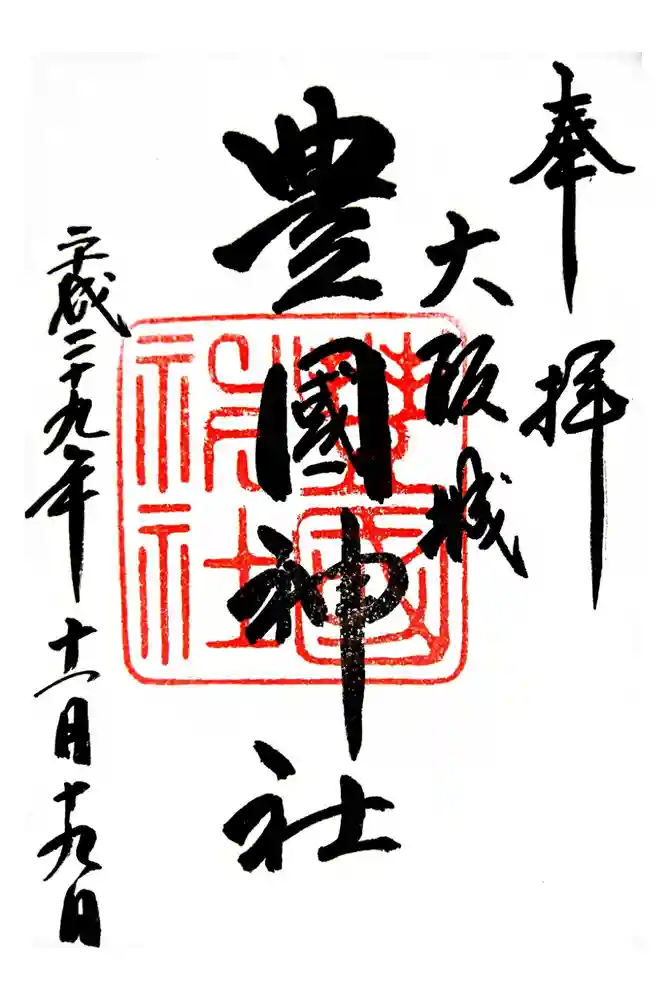 奉拝
大阪城
豊國神社
豊國
神社
平成二十九年十一月十九日